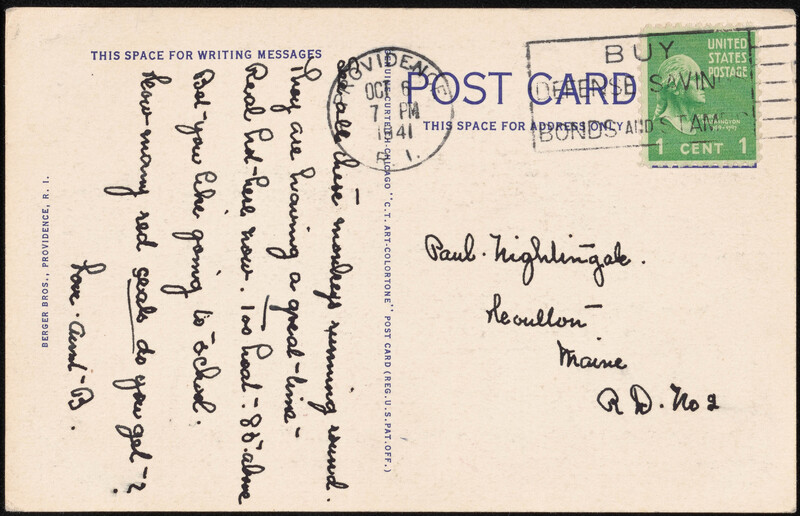 THIS SPACE FOR WRITING MESSAGES
POST CARD
THIS SPACE FOR ADDRESS ONLY
PROVIDENCE
OCT 6
7 PM
1941
R. I.
BUY
DEFENSE SAVIN
BONDS AND STAM
UNITED
STATES
POSTAGE
WASHINGTON
1 CENT 1
See all these monkeys running round.
They are having a great time-
Real hot here now. 85° above
Bet you like going to school.
How many red seals do you get-?
Love. Aunt B.
Paul. Nightingale.
Maine
R.D. No 2
BERGER BROS., PROVIDENCE, R. I.
CURTEICH-CHICAGO "C.T. ART-COLORTONE" POST CARD (REG. U.S. PAT. OFF.)